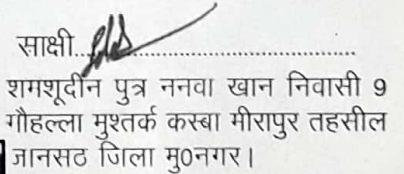 साक्षी.......................................
शमशूदीन पुत्र ननवा खान निवासी 9
गौहल्ला मुश्तर्क कस्बा मीरापुर तहसील
जानसठ जिला मु0नगर।